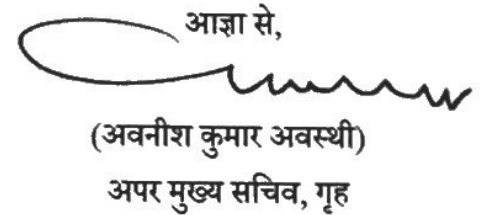 आज्ञा से,
(अवनीश कुमार अवस्थी)
अपर मुख्य सचिव, गृह